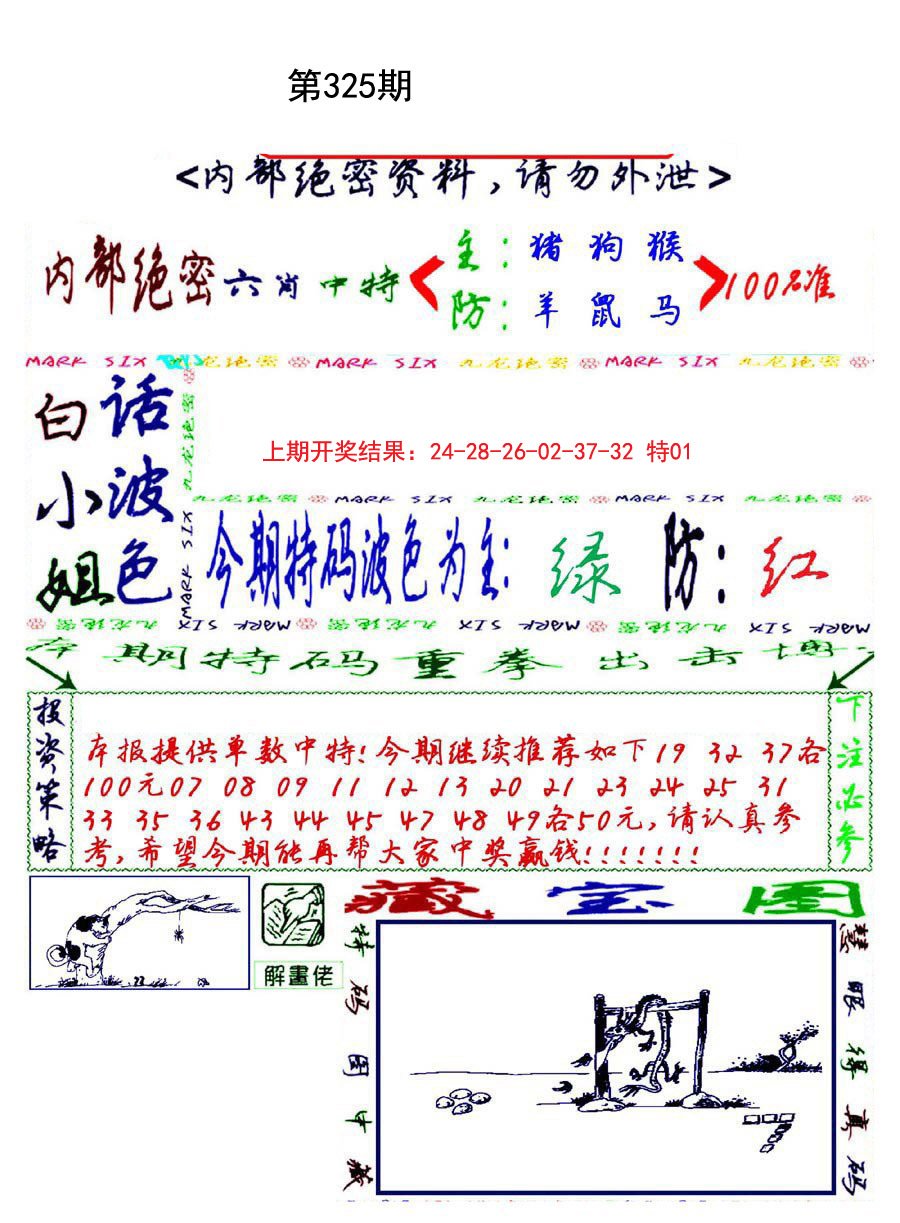 第325期
<内部绝密资料,请勿外泄>
内部绝密六肖中特
主:猪 狗 猴
防:羊 鼠 马
100%准
MARK SIX 九龙绝密 MARK SIX 九龙绝密 MARK SIX 九龙绝密
白话
小波
姐色
九龙绝密
MARK SIX
上期开奖结果：24-28-26-02-37-32 特01
九龙绝密 MARK SIX 九龙绝密 MARK SIX 九龙绝密
今期特码波色为主:绿 防:红
九龙绝密 MARK SIX 九龙绝密 MARK SIX 九龙绝密 MARK SIX
本期特码重拳出击博
投资策略
本报提供单数中特!今期继续推荐如下19 32 37各
100元07 08 09 11 12 13 20 21 23 24 25 31
33 35 36 43 44 45 47 48 49各50元,请认真参
考,希望今期能再帮大家中奖赢钱!!!!!!!
下注必参
解畫佬
藏宝图
特码图中藏
慧眼得真码